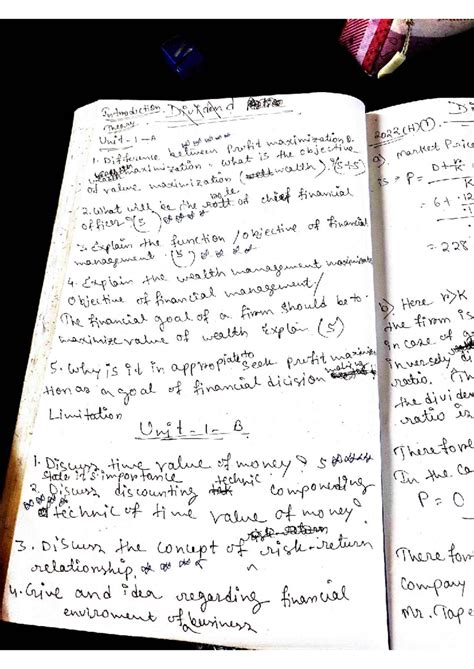 Introduction Dividend
Theory
Unit-1-A
1. Difference between Profit maximization &
wealth maximization. What is the objective
of value maximization (wealth). (5+5)
2. What will be the role of chief financial
officer (5)
3. Explain the function / objective of financial
management. (5)
4. Explain the wealth management maximize
Objective of financial management/
The financial goal of a firm should be to
maximize value of wealth Explain (5)
5. Why is it in appropiate to seek profit maximiza
tion as a goal of financial dicision making
Limitation
Unit-1-B
1. Discuss time value of money? 5
State it's importance
2. Discuss discounting technic componeding
technic of time value of money?
3. Discuss the concept of risk-return
relationship.
4. Give and idea regarding financial
enviroment of business.
2022(H)(1)
a). Market Price
P =
= 6 + .12
.1
= 228
b). Here r>k
the firm is
in case of
inversely
ratio. (Th
the divide
ratio is
Therefore
In the ca
P = 0
There for
Company
Mr. Tape